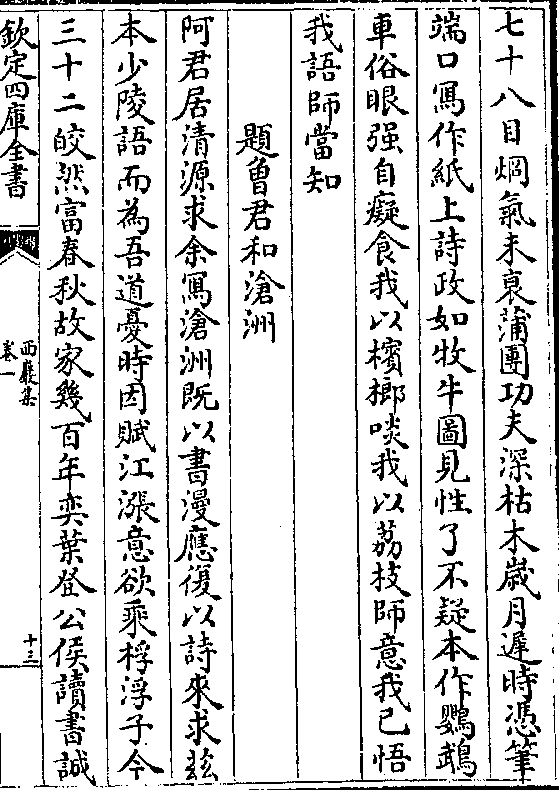 七十八目烱氣未衰蒲團功夫深枯木歲月遲時憑筆
端口寫作紙上詩政如牧牛圖見性了不疑本作鸚鵡
車俗眼强自癡食我以檳榔啖我以荔枝師意我已悟
我語師當知
題曾君和滄洲
阿君居清源求余寫滄洲既以書漫應復以詩來求兹
本少陵語而為吾道憂時因賦江漲意欲乘桴浮子今
三十二皎然富春秋故家幾百年奕葉登公侯讀書誠
欽定四庫全書
西巖集
卷一
十三